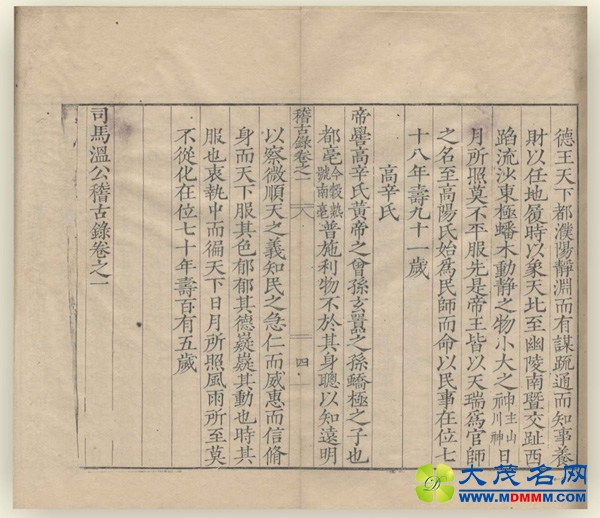 德王天下都濮陽靜淵而有謀疏通而知事養
財以任地履時以象天北至幽陵南暨交趾西
蹈流沙東極蟠木動靜之物小大之神主山川神日
月所照莫不平服先是帝王皆以天瑞爲官師
之名至高陽氏始爲民師而命以民事在位七
十八年壽九十一歲
高辛氏
帝嚳高辛氏黃帝之曾孫玄囂之孫蟜極之子也
都亳今穀熟號南亳普施利物不於其身聰以知遠明
稽古錄卷之一
四
以察微順天之義知民之急仁而威惠而信脩
身而天下服其色郁郁其德嶷嶷其動也時其
服也衷執中而徧天下日月所照風雨所至莫
不從化在位七十年壽百有五歲
司馬溫公稽古錄卷之一
大茂名网
www.MDMMM.com